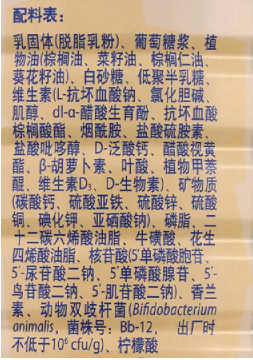 配料表:
乳固体(脱脂乳粉)、葡萄糖浆、植
物油(棕榈油、菜籽油、棕榈仁油、
葵花籽油)、白砂糖、低聚半乳糖、
维生素(L-抗坏血酸钠、氯化胆碱、
肌醇、dl-α-醋酸生育酚、抗坏血酸
棕榈酸酯、烟酰胺、盐酸硫胺素、
盐酸吡哆醇、D-泛酸钙、醋酸视黄
酯、β-胡萝卜素、叶酸、植物甲萘
醌、维生素D₃、D-生物素)、矿物质
(碳酸钙、硫酸亚铁、硫酸锌、硫酸
铜、碘化钾、亚硒酸钠)、磷脂、二
十二碳六烯酸油脂、牛磺酸、花生
四烯酸油脂、核苷酸(5'单磷酸胞苷、
5'-尿苷酸二钠、5'单磷酸腺苷、5'-
鸟苷酸二钠、5'-肌苷酸二钠)、香兰
素、动物双歧杆菌(Bifidobacterium
animalis, 菌株号: Bb-12, 出厂时
不低于10⁶ cfu/g)、柠檬酸